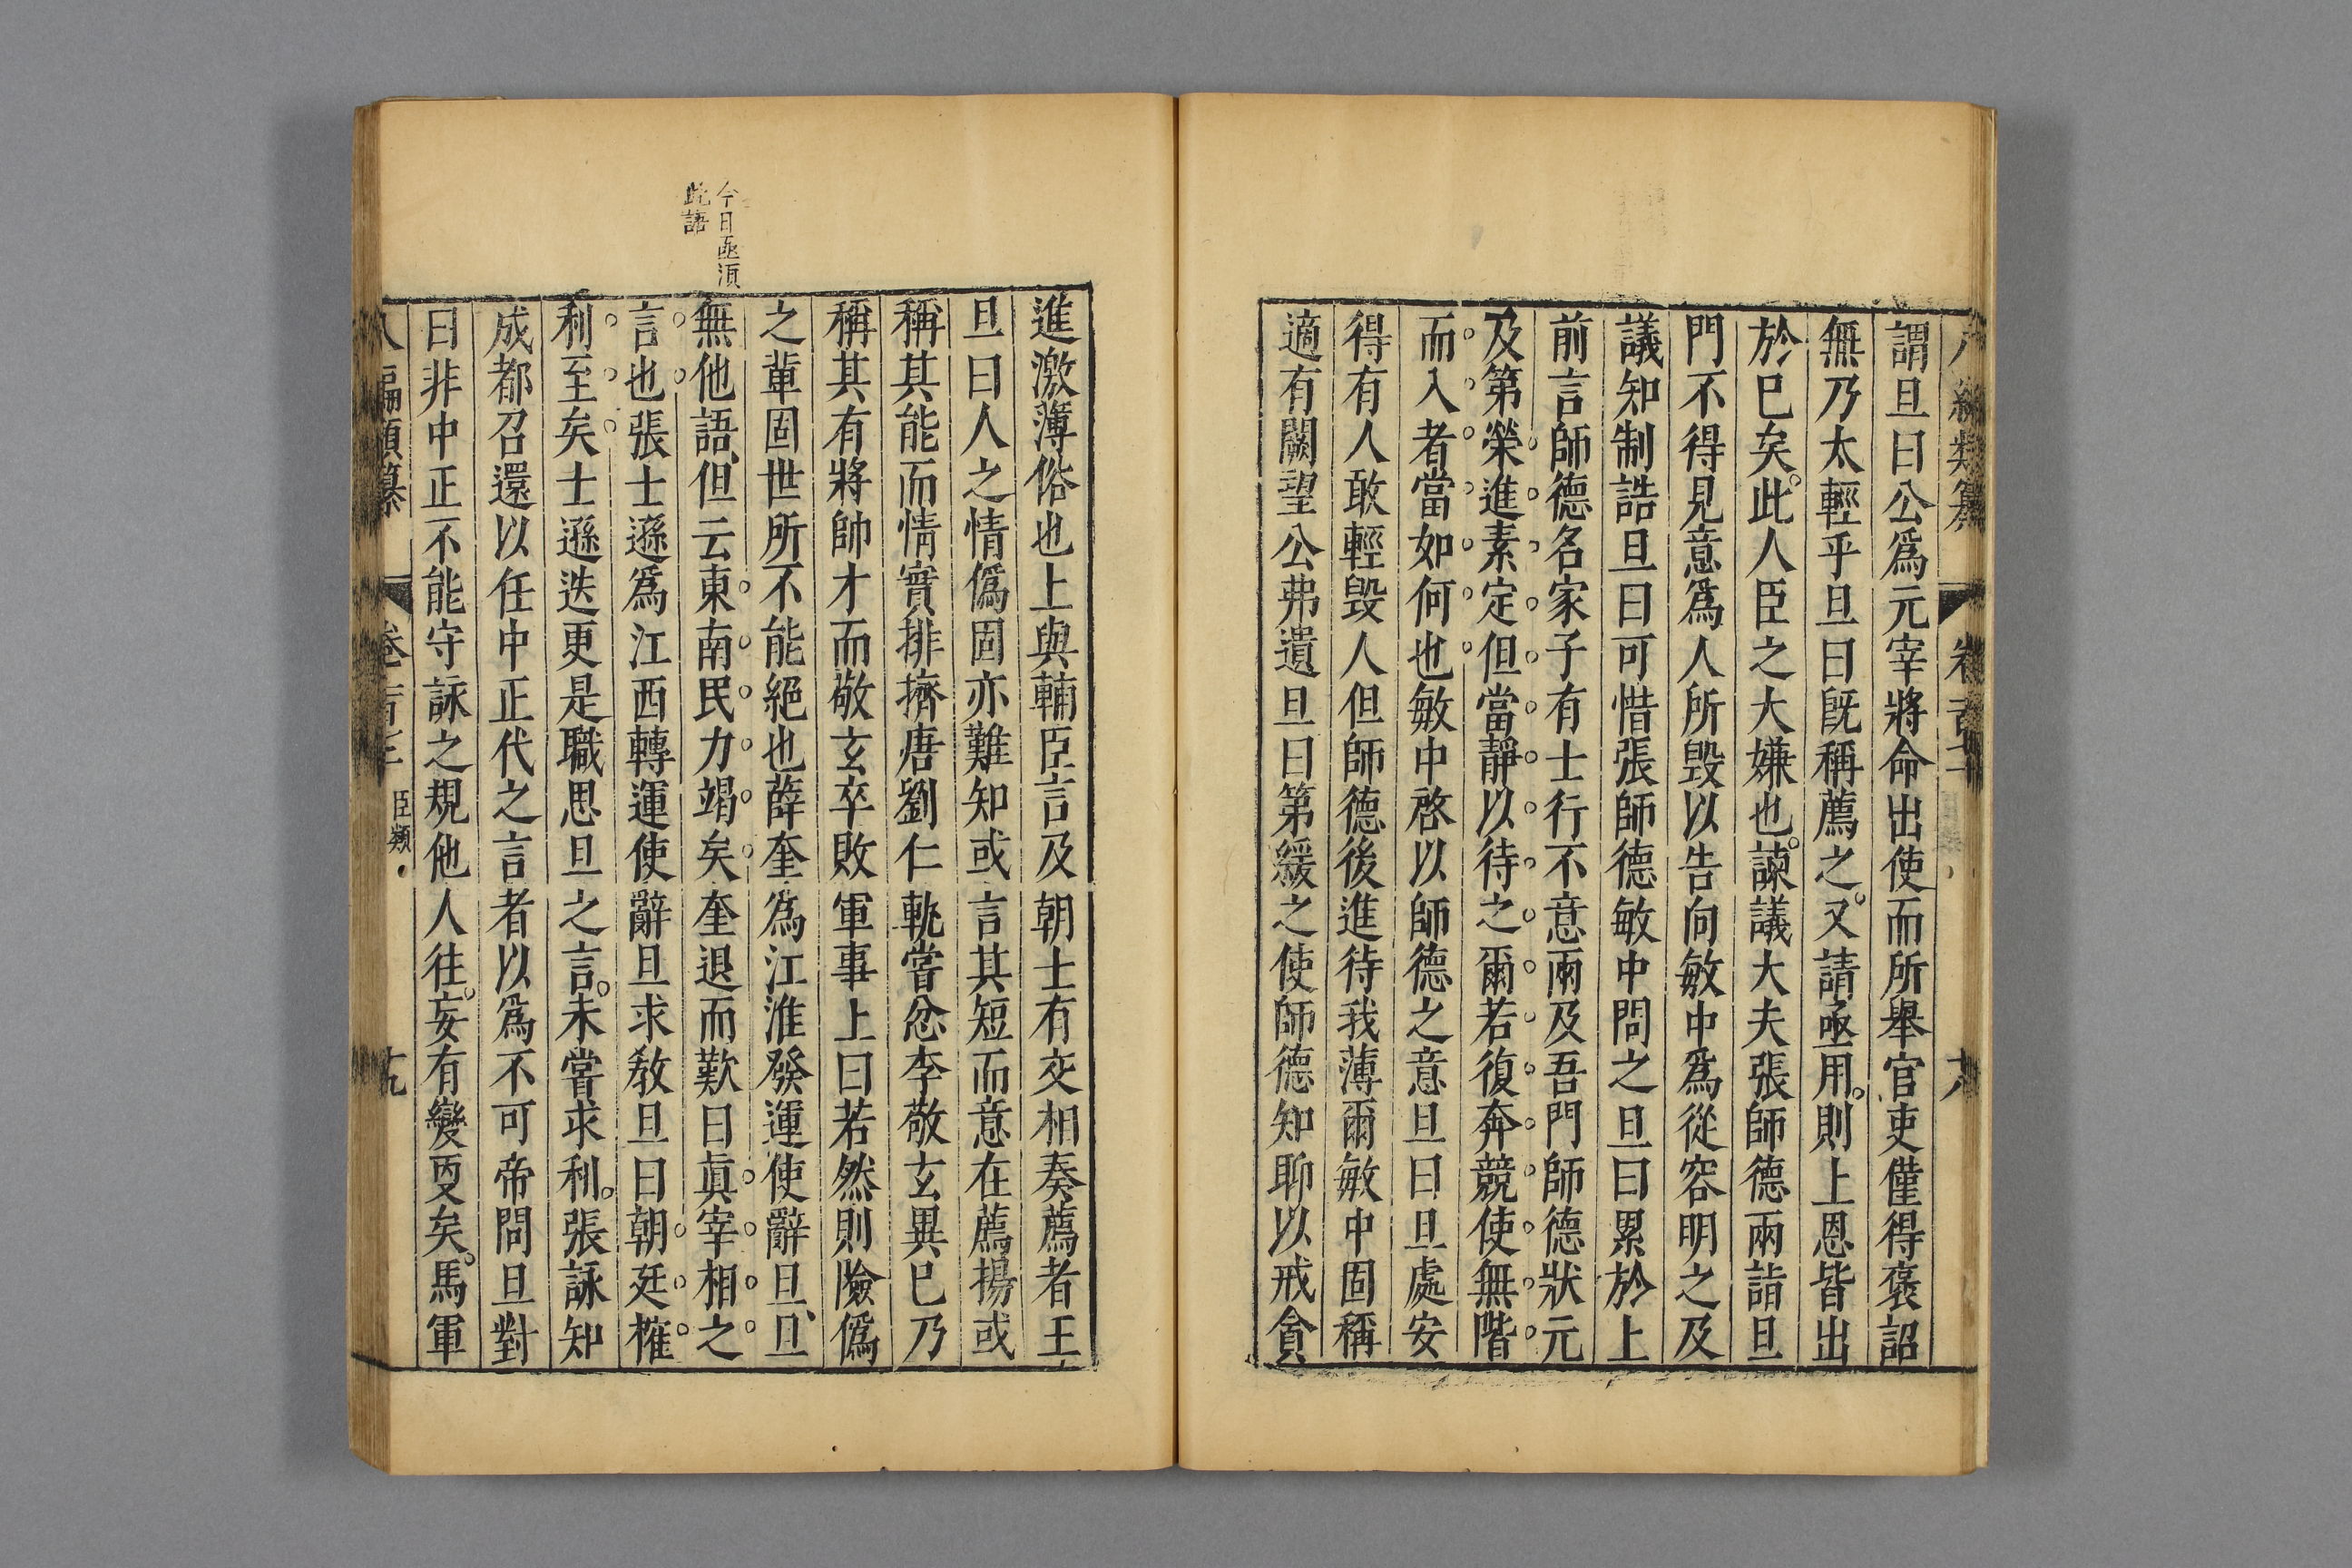 謂旦曰公爲元宰將命出使而所舉官吏僅得褒詔
無乃太輕乎旦曰旣稱薦之又請亟用則上恩皆出
於巳矣此人臣之大嫌也諫議大夫張師德兩詣旦
門不得見意爲人所毀以告向敏中爲從容明之及
議知制誥旦曰可惜張師德敏中問之旦曰累於上
前言師德名家子有士行不意兩及吾門師德狀元
及第榮進素定但當靜以待之爾若復奔競使無階
而入者當如何也敏中啓以師德之意旦曰旦處安
得有人敢輕毀人但師德後進待我薄爾敏中固稱
適有闕望公弗遺旦曰第緩之使師德知聊以戒貪
進激薄俗也上與輔臣言及朝士有交相奏薦者王
旦曰人之情僞固亦難知或言其短而意在薦揚或
稱其能而情實排擠唐劉仁軌嘗忿李敬玄異巳乃
稱其有將帥才而敬玄卒敗軍事上曰若然則險僞
之輩固世所不能絕也薛奎爲江淮發運使辭旦旦
今日亟須
此語
無他語但云東南民力竭矣奎退而歎曰眞宰相之
言也張士遜爲江西轉運使辭旦求敎旦曰朝廷榷
利至矣士遜迭更是職思旦之言未嘗求利張詠知
成都召還以任中正代之言者以爲不可帝問旦對
曰非中正不能守詠之規他人往妄有變更矣馬軍
臣類